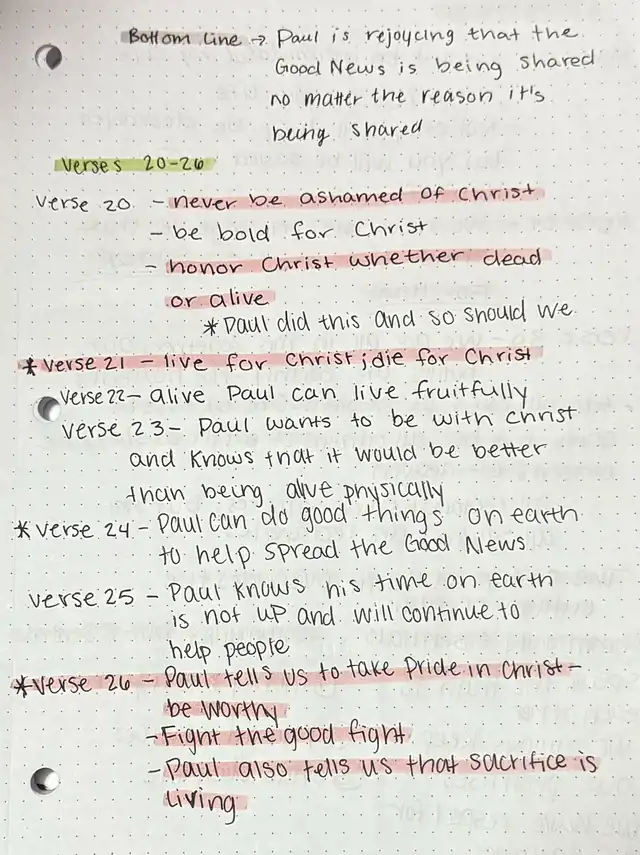 Bottom Line → Paul is rejoycing that the
Good News is being shared
no matter the reason it's
being shared
Verses 20-26
Verse 20 - never be ashamed of Christ
- be bold for Christ
- honor Christ whether dead
or alive
* Paul did this and so should we
* Verse 21 - live for Christ; die for Christ
Verse 22 - alive Paul can live fruitfully
Verse 23 - Paul wants to be with Christ
and knows that it would be better
than being alive physically
* Verse 24 - Paul can do good things on earth
to help spread the Good News
Verse 25 - Paul knows his time on earth
is not up and will continue to
help people
* Verse 26 - Paul tells us to take pride in Christ -
be worthy
- Fight the good fight
- Paul also tells us that sacrifice is
living